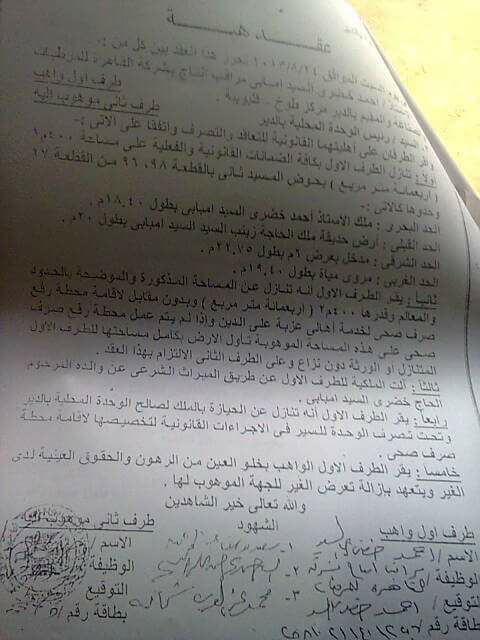 عقد هبة
السبت الموافق ٢٠١٣/٨/٢٤ تحرر هذا العقد بين كل من :-
أحمد خضرى السيد امبابى مراقب انتاج بشركة القاهرة للمرطبات
صناعة والمقيم بالدير مركز طوخ . قليوبية . طرف اول واهب
السيد / رئيس الوحدة المحلية بالدير طرف ثانى موهوب إليه
وقر الطرفان على أهليتهما القانونية للتعاقد والتصرف واتفقا على الاتى :-
أولا : تنازل الطرف الاول بكافة الضمانات القانونية والفعلية على مساحة ٤٠٠م٢
( اربعمائة متر مربع ) بحوض المسيد ثانى بالقطعة ٩٨، ٩٦ من القطعة ٢٧
وحدوها كالاتى :-
الحد البحرى : ملك الاستاذ أحمد خضرى السيد امبابى بطول ١٨.٤٠م .
الحد القبلى : أرض حديقة ملك الحاجة زينب السيد السيد امبابى بطول ٢٠م .
الحد الشرقى : مدخل بعرض ٦م بطول ٢٢.٧٥م .
الحد الغربى : مروى مياة بطول ١٩.٤٠م .
ثانيا : يقر الطرف الاول أنه تنازل عن المساحة المذكورة والموضحة بالحدود
والمعالم وقدرها ٤٠٠م٢ ( اربعمائة متر مربع ) وبدون مقابل لاقامة محطة رفع
صرف صحى لخدمة أهالى عزبة على الدين وإذا لم يتم عمل محطة رفع صرف
صحى على هذه المساحة الموهوبة تأول الارض بكامل مساحتها للطرف الاول
المتنازل او الورثة دون نزاع وعلى الطرف الثانى الالتزام بهذا العقد .
ثالثا : ألت الملكية للطرف الاول عن طريق الميراث الشرعى عن والده المرحوم
الحاج خضرى السيد امبابى .
رابعا : يقر الطرف الاول أنه تنازل عن الحيازة بالملك لصالح الوحدة المحلية بالدير
وتحت تصرف الوحدة للسير فى الاجراءات القانونية لتخصيصها لاقامة محطة
صرف صحى .
خامسا : يقر الطرف الاول الواهب بخلو العين من الرهون والحقوق العينية لدى
الغير ويتعهد بإزالة تعرض الغير للجهة الموهوب لها .
والله تعالى خير الشاهدين
طرف اول واهب الشهود طرف ثانى موهوب إليه
الاسم / أحمد خضرى السيد ١- الاسم /
الوظيفة / ٢- الوظيفة
التوقيع ٣- التوقيع
بطاقة رقم / بطاقة رقم /